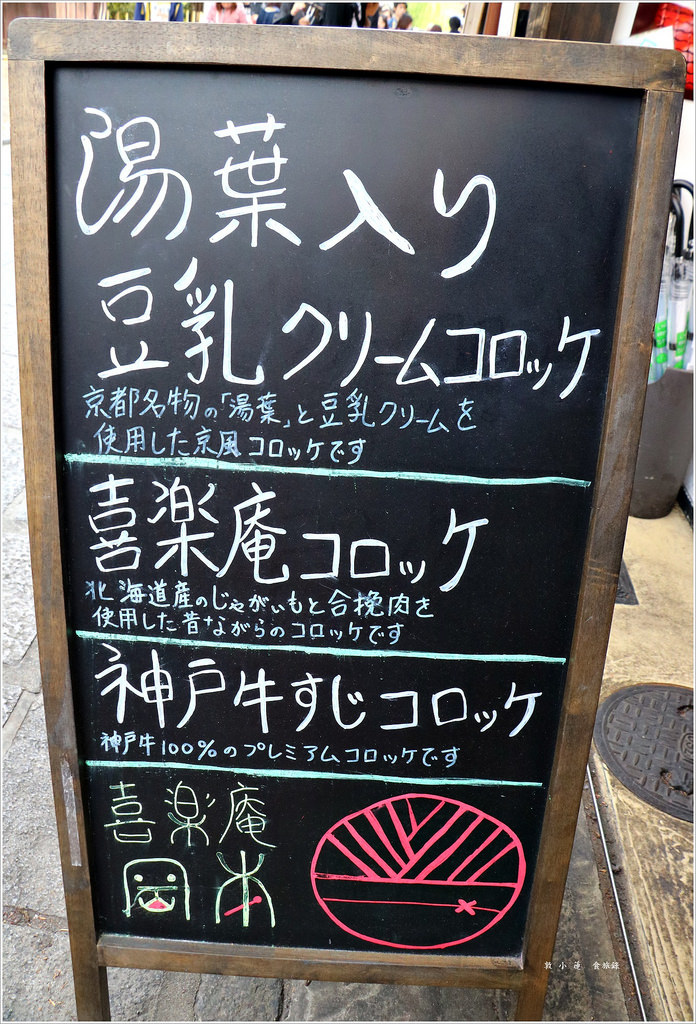 湯葉入り
豆乳クリームコロッケ
京都名物の「湯葉」と豆乳クリームを
使用した京風コロッケです
喜楽庵コロッケ
北海道産のじゃがいもと合挽肉を
使用した昔ながらのコロッケです
神戸牛すじコロッケ
神戸牛100%のプレミアムコロッケです
喜楽庵
岡本
敦小蓮 食旅錄